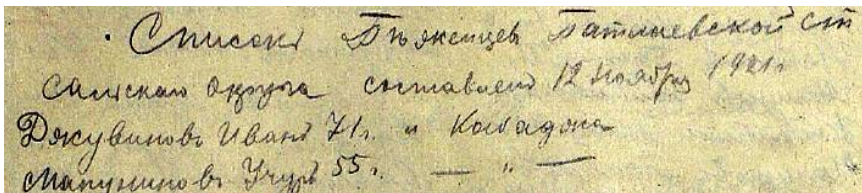 Списокъ Бѣженцев Батлаевской ст
Салскаго Округа составлен 12 Ноября 1921 г.
Джувиновъ Иванъ 71 г. и Кабаджа
Манушиновъ Учуръ 55 г. — „ —